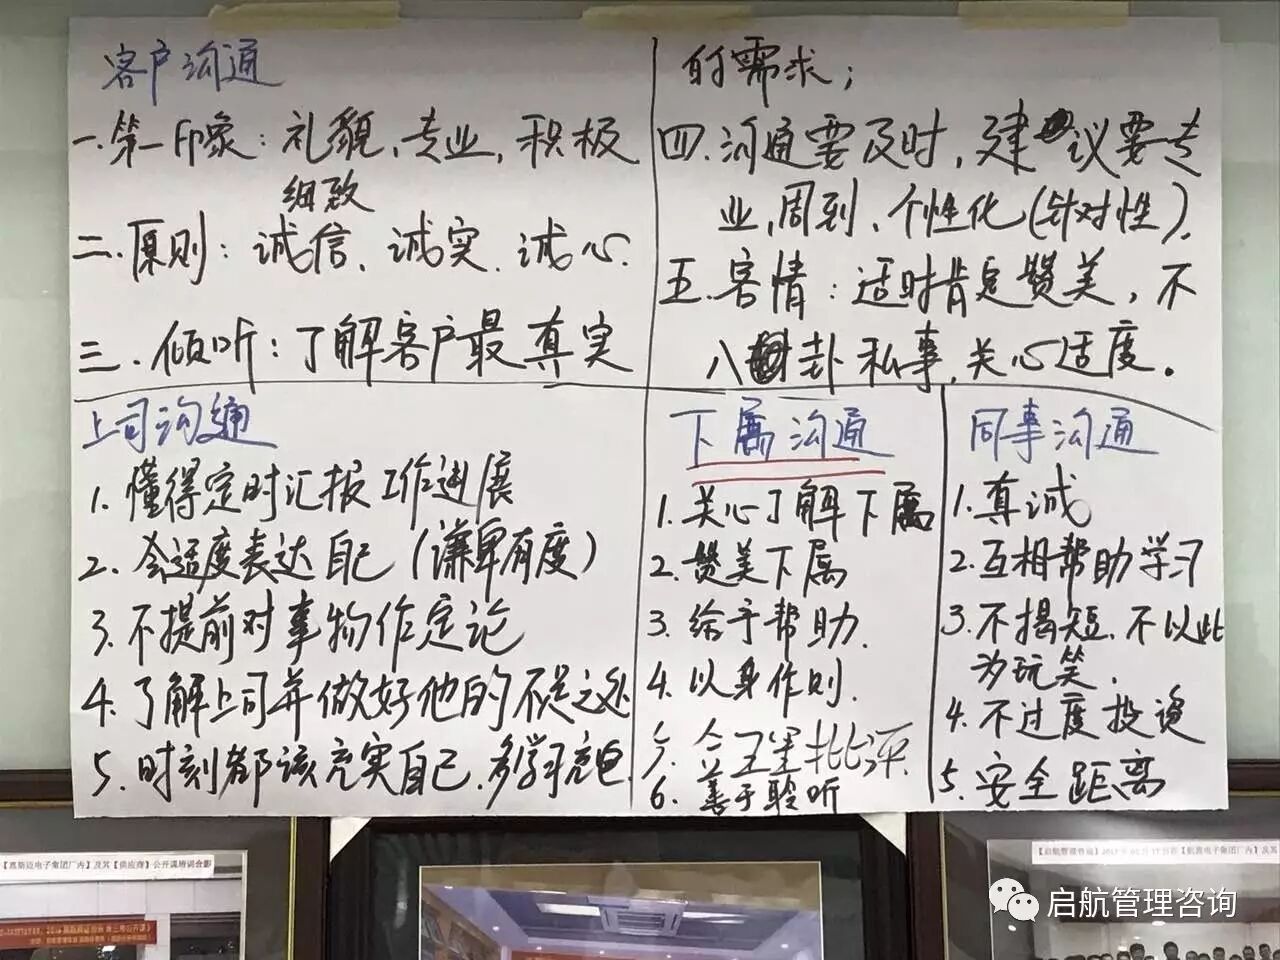 客户沟通
一.第一印象：礼貌、专业，积极
细致
二.原则：诚信、诚实.诚心.
三.倾听：了解客户最真实
的需求；
四.沟通要及时，建议要专
业，周到、个性化(针对性).
五.客情：适时肯定赞美，不
八卦私事，关心适度。
上司沟通
1.懂得定时汇报工作进展
2.会适度表达自己(谦卑有度)
3.不提前对事物作定论
4.了解上司并做好他的不足之处
5.时刻都该充实自己.多学习充电.
下属沟通
1.关心了解下属
2.赞美下属
3.给于帮助.
4.以身作则.
批评.
6.善于聆听
同事沟通
1.真诚
2.互相帮助学习
3.不揭短.不以此
为玩笑.
4.不过度投资
5.安全距离
电子集团厂内】及其【供应商】公开课培训合影
启航管理咨询